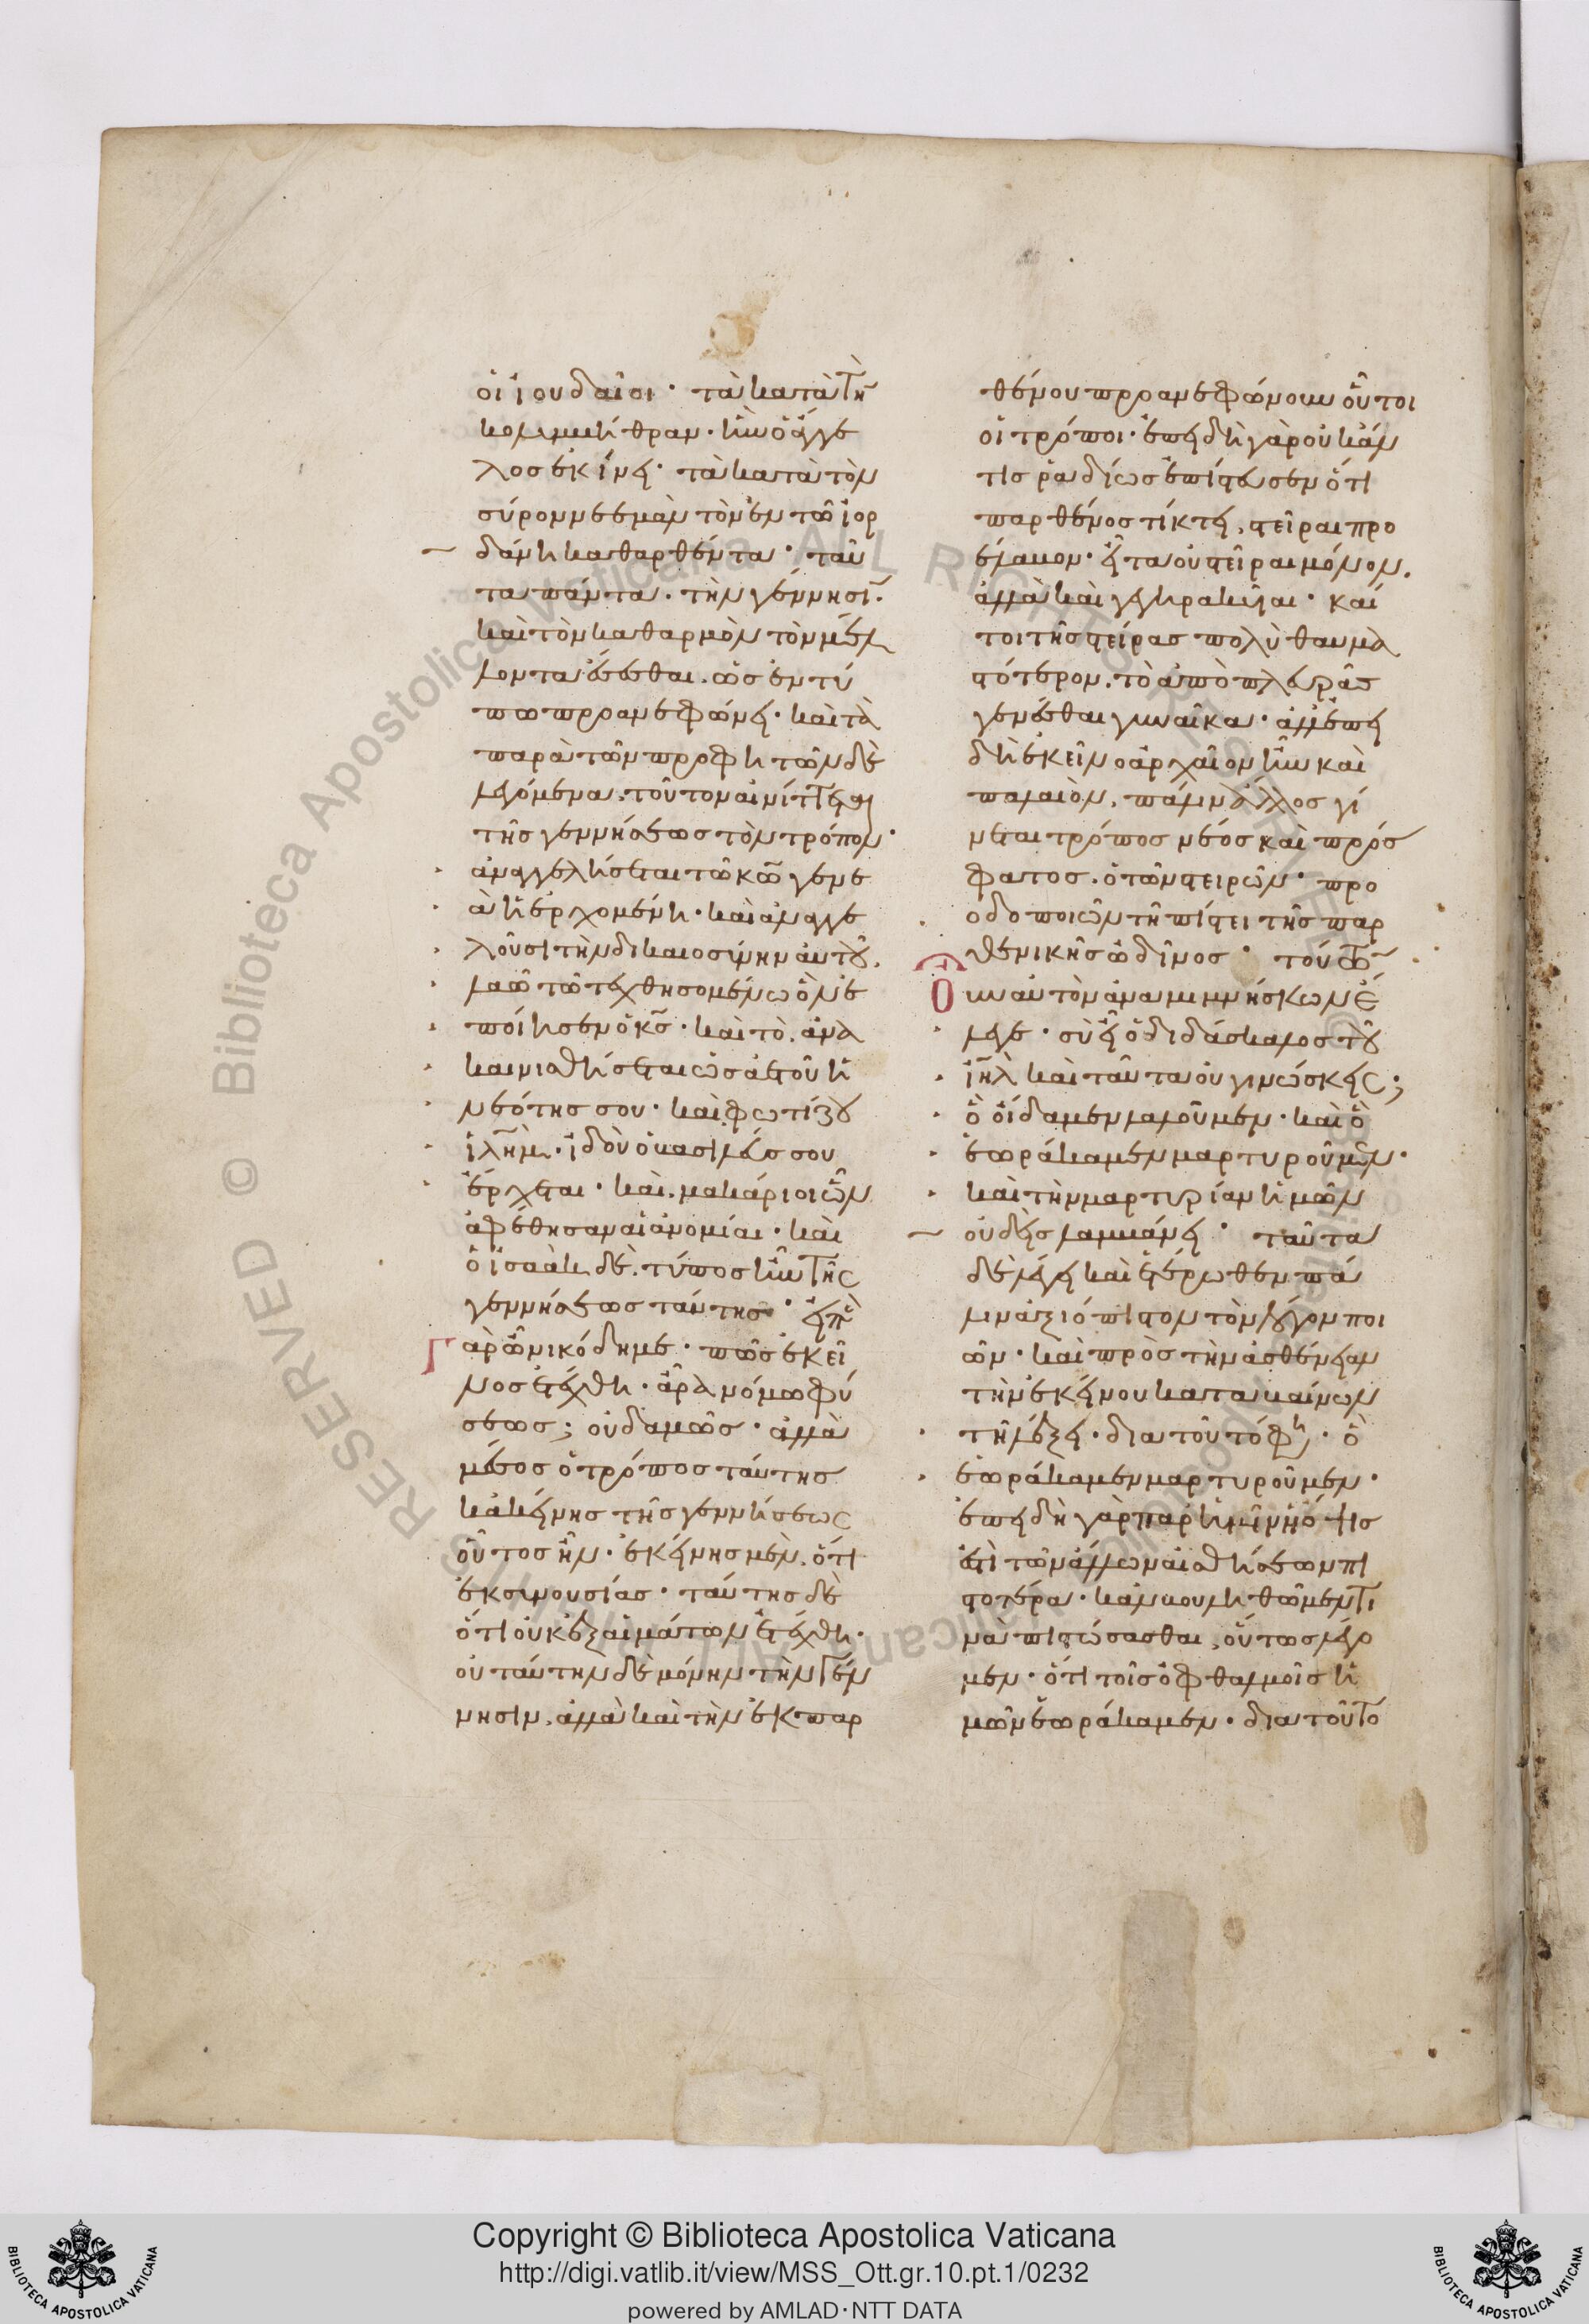 οἱ ἰουδαῖοι· τὰ κατὰ τὴν
κολυμβήθραν· ἣν ὁ ἄγγε
λος ἐκίνει· τὰ κατὰ τὸν
σύρον νεεμὰν τὸν ἐν τῶ ἰορ
δάνη καθαρθέντα· ταῦ
τα πάντα. τὴν γέννησϊ̅.
καὶ τὸν καθαρμὸν τὸν μέλ
λοντα ἔσεσθαι. ὡς ἐν τύ
πω προανεφώνει. καὶ τὰ
παρὰ τῶν προφητῶν δὲ
λεγόμενα. τοῦτον αἰνίττεται
τῆς γεννήσεως τὸν τρόπον·
ἀναγγελήσεται τῶ κ̅ω̅ γενε
ὰ ἡ ἐρχομένη. καὶ ἀναγγε
λοῦσι τὴν δικαιοσύνην αὐτοῦ.
λαῶ τῶ τεχθησομένω ὃν ἐ
ποίησεν ὁ κ̅ς̅. καὶ τὸ. ἀνα
καινισθήσεται ὡς ἀετοῦ ἡ
νεότης σου. καὶ φωτίζου
ἱ̅λ̅η̅μ̅. ἰδοὺ ὁ βασιλεύς σου
ἔρχεται. καὶ. μακάριοι ὧν
ἀφέθησαν αἱ ἀνομίαι. καὶ
ὁ ἰσαὰκ δὲ. τύπος ἦν τῆς
γεννήσεως ταύτης· εἰπὲ
γὰρ ὦ νικόδημε. πῶς ἐκεῖ
νος ἐτέχθη. ἆρα νόμω φύ
σεως; οὐδαμῶς. ἀλλὰ
μέσος ὁ τρόπος ταύτης
κἀκείνης τῆς γεννήσεως
οὗτος ἦν. ἐκείνης μὲν. ὅτι
ἐκ συνουσίας. ταύτης δὲ
ὅτι οὐκ ἐξ αἱμάτων ἐτέχθη.
οὐ ταύτην δὲ μόνην τὴν γέν
νησιν. ἀλλὰ καὶ τὴν ἐκ παρ
θένου προανεφώνουν οὗτοι
οἱ τρόποι. ἐπειδὴ γὰρ οὐκ ἄν
τις ῥαδίως ἐπίστευσεν ὅτι
παρθένος τίκτει. στεῖραι προ
έλαβον. εἶτα οὐ στεῖραι μόνον.
ἀλλὰ καὶ γεγηρακυῖαι. καί
τοι τῆς στείρας πολὺ θαυμα
στότερον. τὸ ἀπὸ πλευρᾶς
γενέσθαι γυναῖκα. ἀλλ' ἐπει
δὴ ἐκεῖνο ἀρχαῖον ἦν καὶ
παλαιὸν. πάλιν ἄλλος γί
νεται τρόπος νέος καὶ πρόσ
φατος. ὁ τῶν στειρῶν· προ
οδοποιῶν τῆ πίστει τῆς παρ
θενικῆς ὠδῖνος· τούτω̅
οὖν αὐτὸν ἀναμιμνήσκων ἔ
λεγε. σὺ εἶ ὁ διδάσκαλος τοῦ
ἰ̅η̅λ̅ καὶ ταῦτα οὐ γινώσκεις;
ὃ οἴδαμεν λαλοῦμεν. καὶ ὃ
ἑωράκαμεν μαρτυροῦμεν.
καὶ τὴν μαρτυρίαν ἡμῶν
οὐδεὶς λαμβάνει· ταῦτα
δὲ λέγει καὶ ἑτέρωθεν πά
λιν ἀξιόπιστον τὸν λόγον ποι
ῶν. καὶ πρὸς τὴν ἀσθένειαν
τὴν ἐκείνου καταβαίνων
τῆ λέξει. διατοῦτό φη(σιν). ὃ
ἑωράκαμεν μαρτυροῦμεν.
ἐπειδὴ γὰρ παρ' ἡμῖν ἡ ὄψις
ἐστὶ τῶν ἄλλων αἰσθήσεων πι
στοτέρα. κἂν βουληθῶμέν τι
να πιστώσασθαι, οὕτως λέγο
μεν. ὅτι τοῖς ὀφθαλμοῖς ἡ
μῶν ἑωράκαμεν. διατοῦτο
Copyright © Biblioteca Apostolica Vaticana
http://digi.vatlib.it/view/MSS_Ott.gr.10.pt.1/0232
powered by AMLAD·NTT DATA